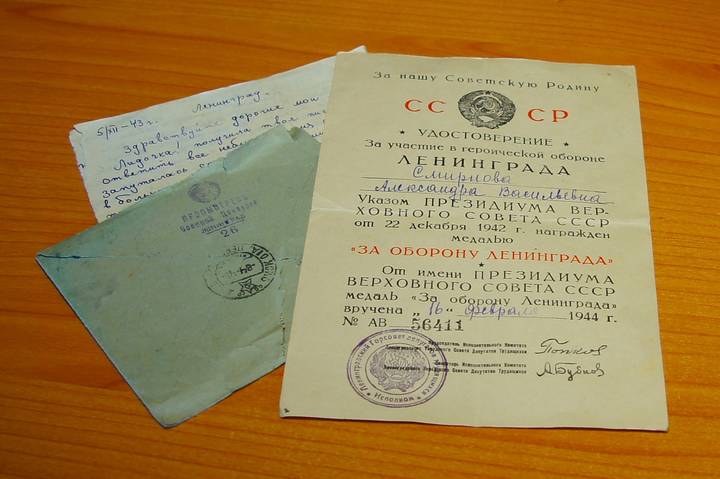 5/XII-43г. Ленинград.
Здравствуйте дорогие мои
Лидочка! получила твое
ответить все
запуталась
в боль
ПРОВОМЕРЕНО
Военной Цензурой
ЛЕНИНГРАД
26
За нашу Советскую Родину
СССР
УДОСТОВЕРЕНИЕ
За участие в героической обороне
ЛЕНИНГРАДА
Смирнова
Александра Васильевна
Указом ПРЕЗИДИУМА ВЕР-
ХОВНОГО СОВЕТА СССР
от 22 декабря 1942 г. награжден
медалью
«ЗА ОБОРОНУ ЛЕНИНГРАДА»
От имени ПРЕЗИДИУМА
ВЕРХОВНОГО СОВЕТА СССР
медаль «За оборону Ленинграда»
вручена „16" февраля 1944 г.
№ АВ 56411
Председатель Исполнительного Комитета
Ленинградского Городского Совета Депутатов Трудящихся
Попков
Секретарь Исполнительного Комитета
Ленинградского Городского Совета Депутатов Трудящихся
А Бубнов
Ленинградский Горсовет депутатов трудящихся
Исполком